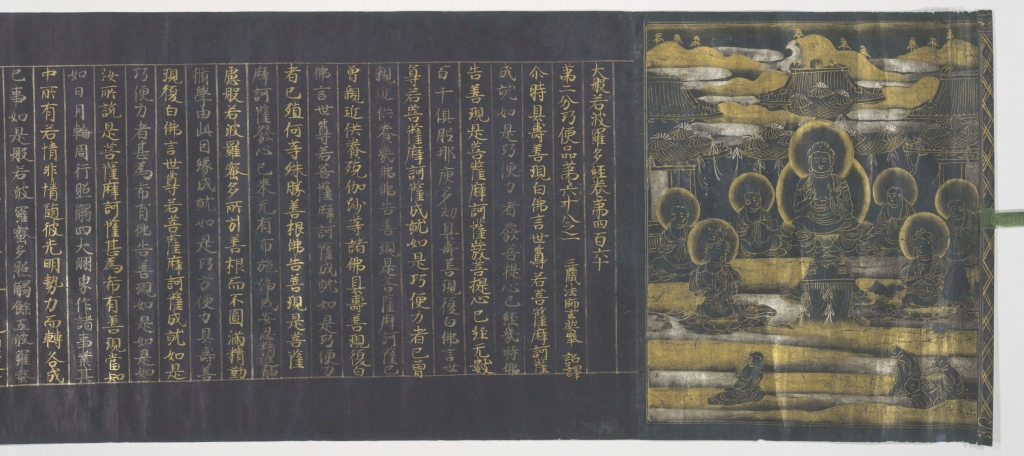 大般若波羅多経卷第四百六十
第二分巧便品第六十八之一　三蔵法師玄奘奉　詔譯
尒時具壽善現白佛言世尊若菩薩摩訶薩
成就如是巧便力者發菩提心已経幾時佛
告善現是菩薩摩訶薩發菩提心已経无數
百千俱胝那庾多劫具壽善現復白佛言世
尊若菩薩摩訶薩成就如是巧便力者已曾
親近供養幾佛佛告善現是菩薩摩訶薩已
曾親近供養殑伽沙等諸佛具壽善現復白
佛言世尊若菩薩摩訶薩成就如是巧便力
者已殖何等殊勝善根佛告善現是菩薩
摩訶薩發心已来无有布施淨戒安忍精進靜
慮般若波羅蜜多所引善根而不圓滿精勤
脩學由此因緣成就如是巧方便力具壽善
現復白佛言世尊若菩薩摩訶薩成就如是
巧便力者甚為希有佛告善現如是如是如
汝所說是菩薩摩訶薩甚為希有善現當知
如日月輪周行照觸四大洲界作諸事業其
中所有若情非情隨彼光明勢力而轉各成
已事如是般若波羅蜜多照觸餘五波羅蜜